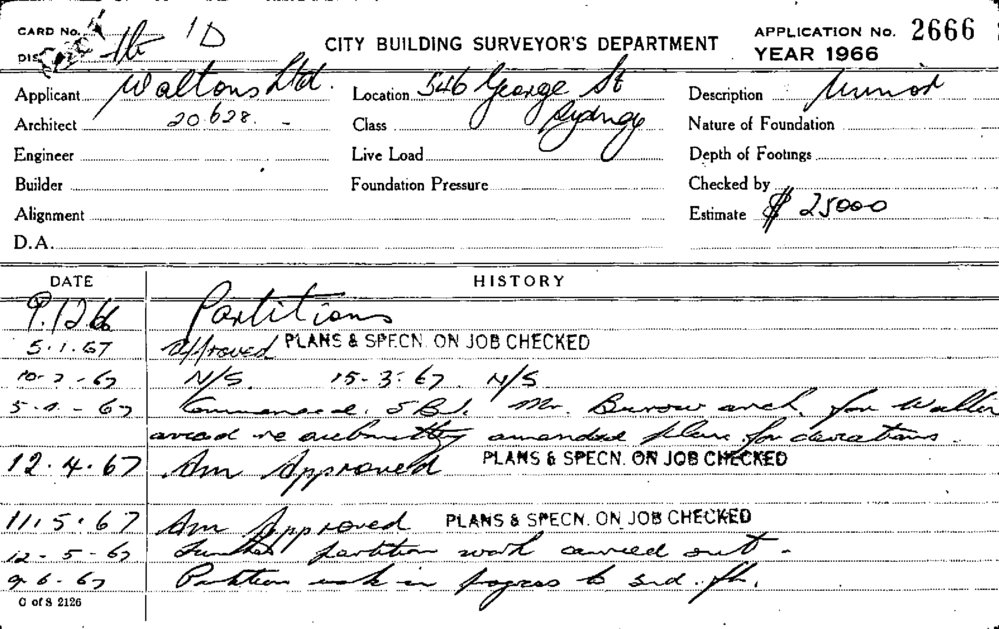 CARD No. 1D
DIS 16
CITY BUILDING SURVEYOR'S DEPARTMENT
APPLICATION No. 2666
YEAR 1966
Applicant Waltons Ltd. Location 546 George St Sydney Description
Architect 20.628. - Class Nature of Foundation
Engineer Live Load Depth of Footings
Builder Foundation Pressure Checked by
Alignment Estimate $ 25000
D.A.
DATE HISTORY
9.12.66 Partitions
5.1.67 Approved PLANS & SPECN. ON JOB CHECKED
10-3-67 N/S. 15-3-67. N/S
5-4-67 Commenced. Mr. Burow arch. for
re submitting amended plans for deviations.
12.4.67 Am Approved PLANS & SPECN. ON JOB CHECKED
11.5.67 Am Approved PLANS & SPECN. ON JOB CHECKED
12-5-67 Further partition work carried out -
9-6-67 Partition work in progress to 3rd. flr.
C of S 2126